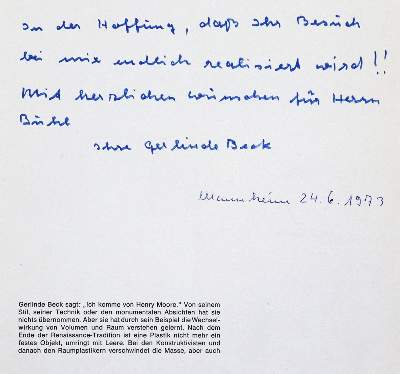 In der Hoffnung, daß Ihr Besuch
bei mir endlich realisiert wird!!
Mit herzlichen wünschen für Herrn
Buhl
Ihre Gerlinde Beck
Mannheim 24.6.1973
Gerlinde Beck sagt: „Ich komme von Henry Moore." Von seinem
Stil, seiner Technik oder den monumentalen Absichten hat sie
nichts übernommen. Aber sie hat durch sein Beispiel die Wechsel-
wirkung von Volumen und Raum verstehen gelernt. Nach dem
Ende der Renaissance-Tradition ist eine Plastik nicht mehr ein
festes Objekt, umringt mit Leere. Bei den Konstruktivisten und
danach den Raumplastikern verschwindet die Masse, aber auch